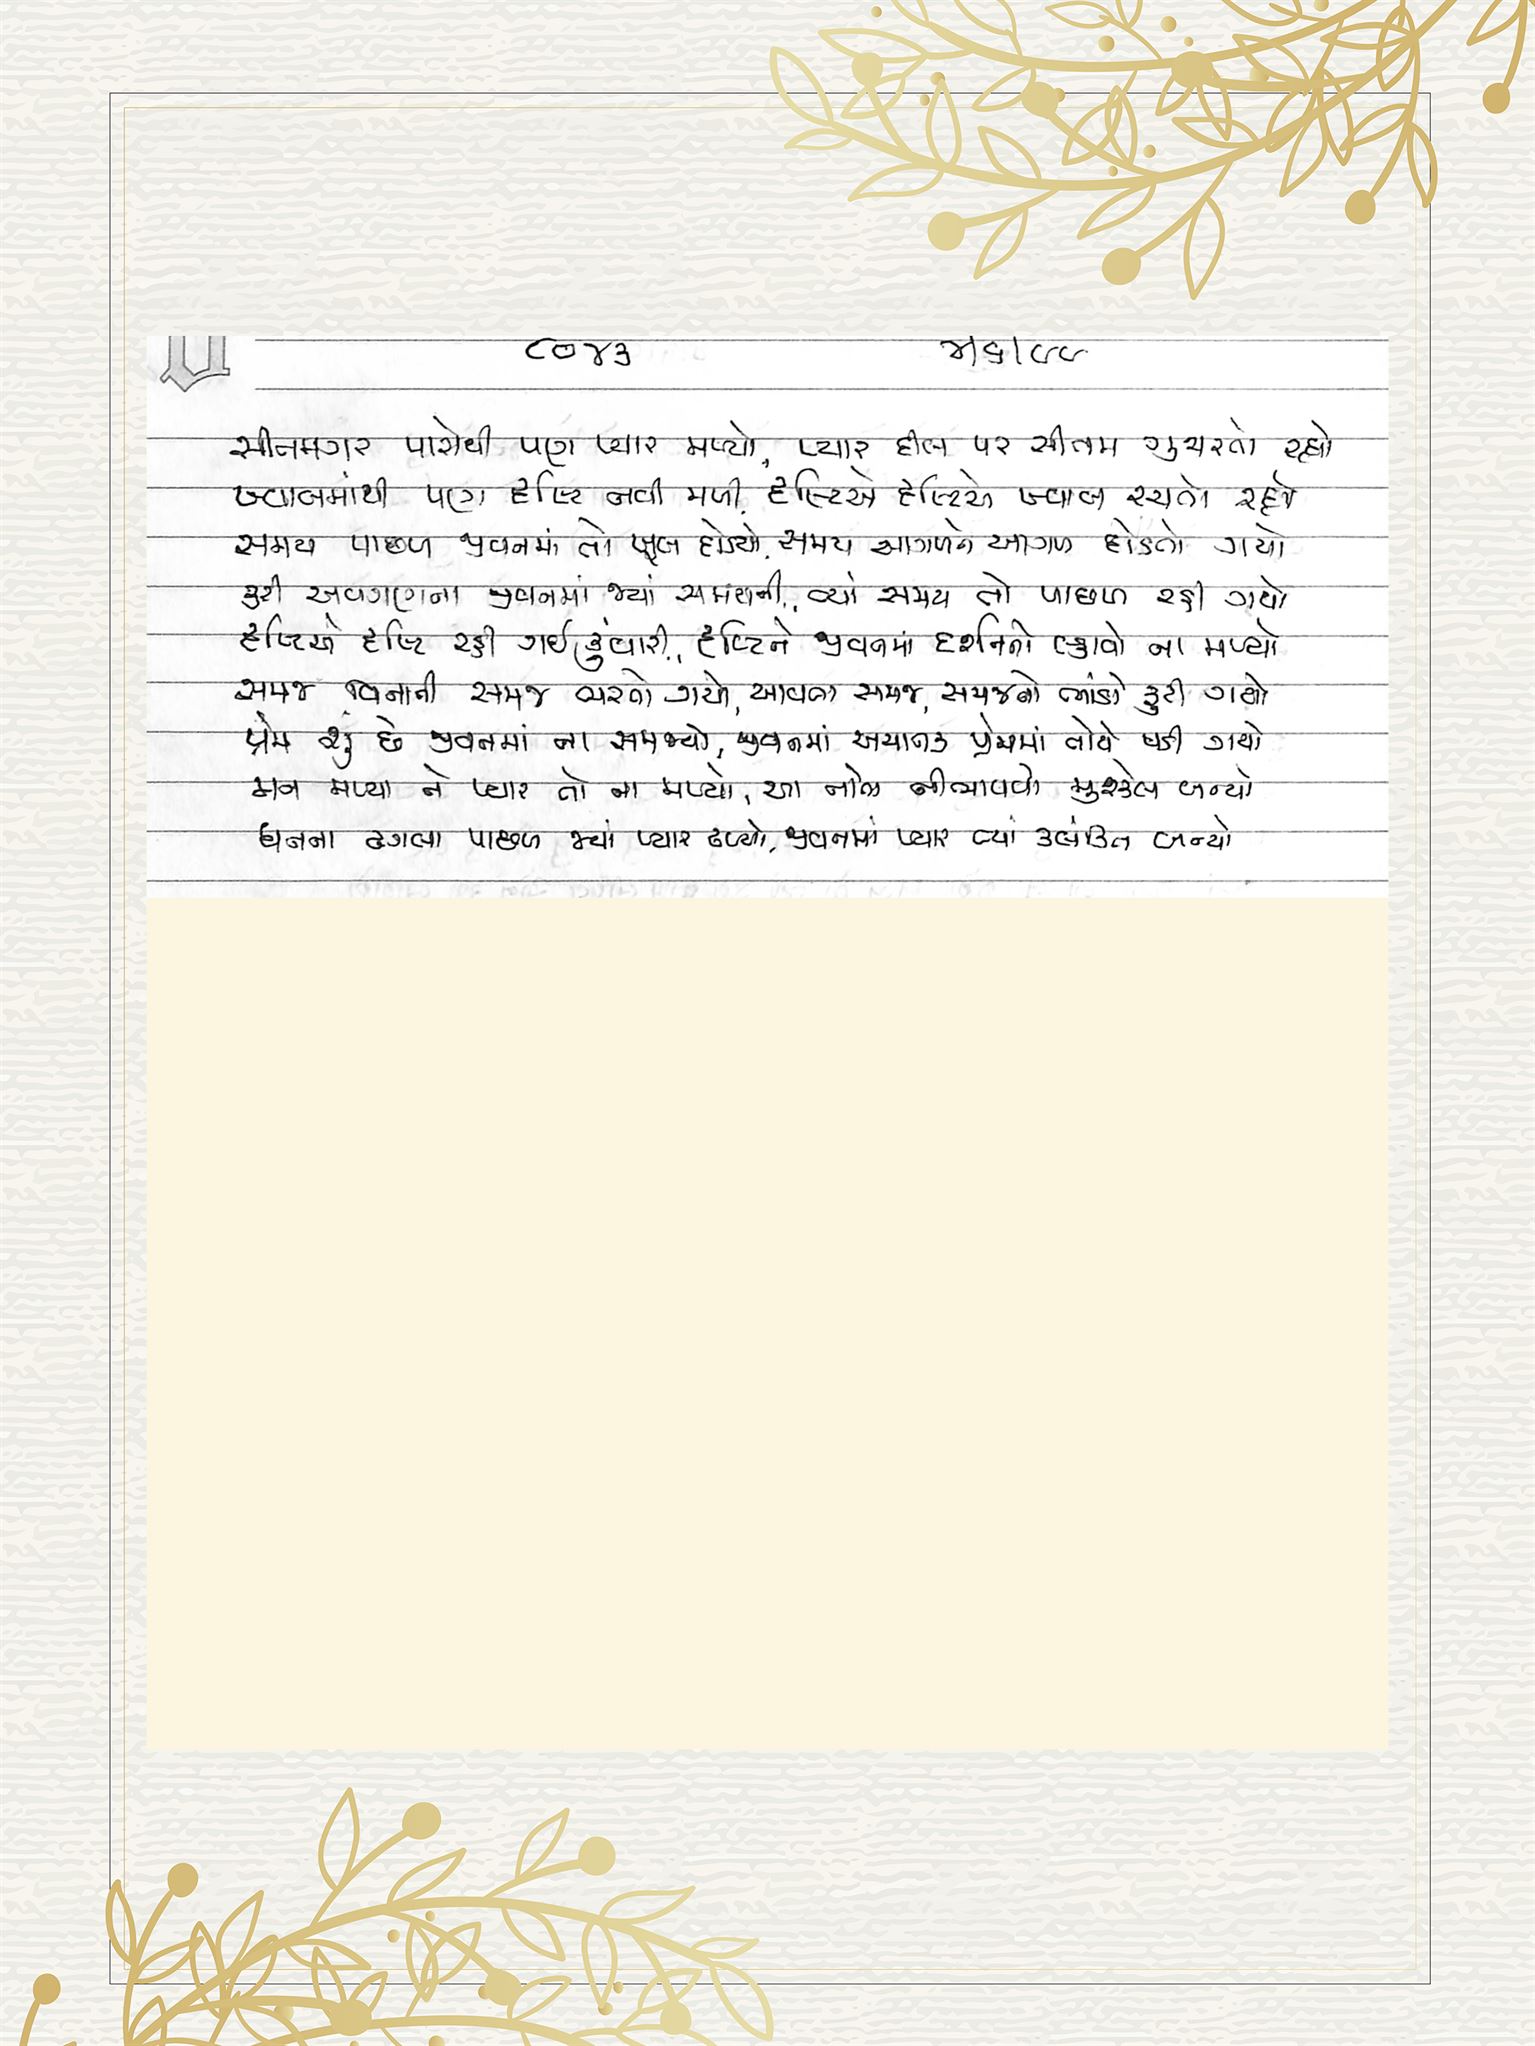 ૮૦૪૩ ૪/૬/૯૯
સીતમગર પાસેથી પણ પ્યાર મળ્યો, પ્યાર દીલ પર સીતમ ગુજારતો રહ્યો
ખ્વાબમાંથી પણ દૃષ્ટિ નવી મળી, દૃષ્ટિએ દૃષ્ટિએ ખ્વાબ રચતો રહ્યો
સમય પાછળ જીવનમાં તો ખૂબ દોડયો, સમય આગળને આગળ દોડતો ગયો
કરી અવગણના જીવનમાં જ્યાં સમયની, ત્યાં સમય તો પાછળ રહી ગયો
દૃષ્ટિએ દૃષ્ટિ રહી ગઈ કુંવારી, દૃષ્ટિને જીવનમાં દર્શનનો લ્હાવો ના મળ્યો
સમજ વિનાની સમજ ભરતો ગયો, આવતા સમજ, સમજનો ભાંડો ફુટી ગયો
પ્રેમ શું છે જીવનમાં ના સમજ્યો, જીવનમાં અચાનક પ્રેમમાં તોયે પડી ગયો
મન મળ્યા ને પ્યાર તો ના મળ્યો, આ નાતો નીભાવવો મુશ્કેલ બન્યો
ધનના ઢગલા પાછળ જ્યાં પ્યાર ઢળ્યો, જીવનમાં પ્યાર ત્યાં કલંકિત બન્યો